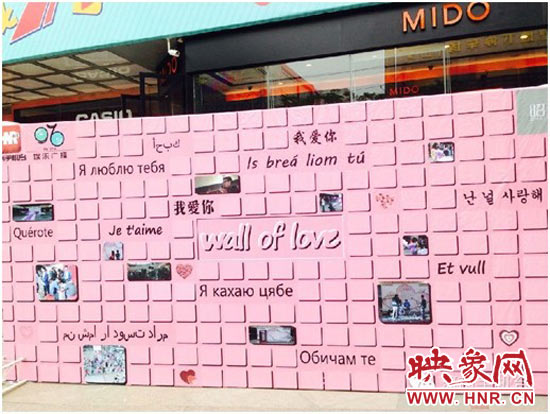 MIDO
MIDO
CASIO
娱乐广播
我爱你
Is breá liom tú
Я люблю тебя
난 널 사랑해
我爱你
Quérote
Je t'aime
wall of love
Et vull
Я кахаю цябе
Обичам те
映象网
WWW.HNR.CN